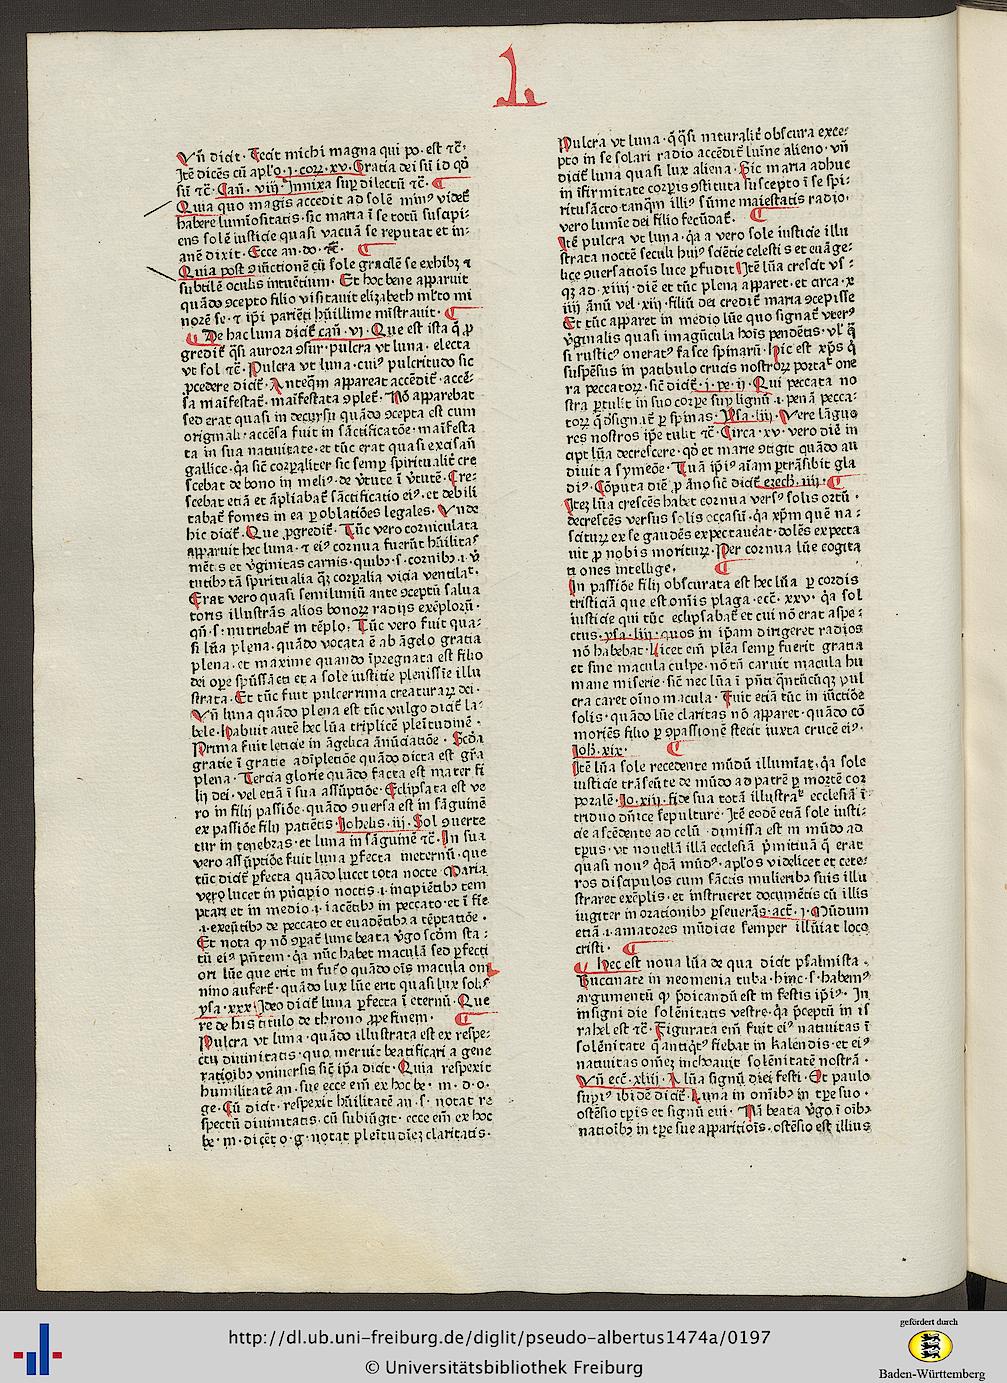 L
Vñ dicit. Fecit michi magna qui po. est ⁊c̄.
Itē dicēs cū apl'o. j. corꝝ. xv. Gratia dei sū id qđ
sū ⁊c̄. Cañ. viij. Innixa suꝑ dilectū ⁊c̄.
Quia quo magis accedit ad solē minꝰ videt̄
habere lumīositatis. sic maria ī se totū suscipi⸗
ens solē iusticie quasi vacuā se reputat et in⸗
anē dixit. Ecce an. do. ⁊c̄.
Quia post ꝯiūctionē cū sole gracilē se exhibꝫ ⁊
subtilē oculis intuētium. Et hoc bene apparuit
quādo ꝯcepto filio visitauit elizabeth
norē se. ⁊ ip̄i pariēti hūillime mīstrauit.
De hac luna dicit̄ cañ. vj. Que est ista q̄ ꝓ
gredit̄ q̄si aurora ꝯsur. pulcra vt luna. electa
vt sol ⁊c̄. Pulcra vt luna. cuiꝰ pulcritudo sic
ꝓcedere dicit̄. Anteq̄m appareat accēdit̄. accē⸗
sa maīfestat̄. maīfestata ꝯplet̄. Nō apparebat
sed erat quasi in decursu quādo ꝯcepta est cum
originali. accēsa fuit in sāctificatōe. maīfesta
ta in sua natiuitate. et tūc erat quasi
gallice. q̄a sic̄ corꝑaliter sic semꝑ spiritualit̄ cre
scebat de bono in meliꝰ. de v̄tute ī v̄tutē. Cre⸗
scebat etiā et āpliabat̄ sāctificatio eiꝰ. et debili
tabat̄ fomes in ea ꝑ oblatiōes legales. Vnde
hic dicit̄. Que ꝓgredit̄. Tūc vero corniculata
apparuit hec luna. ⁊ eiꝰ cornua fuerūt hūilitaꝭ
mēt̄. s et v̄ginitas carnis. quibꝫ. s. cornibꝫ. i. v̄
tutibꝫ tā spiritualia q̄ꝫ corꝑalia vicia ventilat̄.
Erat vero quasi semiluniū ante ꝯceptū salua
toris illustrās alios bonorꝝ radijs exēplorū.
qñ. s. nutriebat̄ in tēplo. Tūc vero fuit qua⸗
si lūa plena. quādo vocata ē ab āgelo gratia
plena. et maxime quando īpregnata est filio
dei oꝑe sp̄ussācti et a sole iusticie plenissīe illu
strata. Et tūc fuit pulcerrima creaturaꝝ dei.
Vñ luna quādo plena est tūc vulgo dicit̄ la⸗
bele. Habuit autē hec lūa triplicē plēitudinē.
Prima fuit leticie in āgelica ānūciatiōe. Scđa
gratie ī gratie adīpletiōe quādo dicta est gr̄a
plena. Tercia glorie quādo facta est mater fi
lij dei. vel etiā ī sua assūptiōe. Eclipsata est ve
ro in filij passiōe. quādo ꝯuersa est in sāguinē
ex passiōe filij patiētis. Johelis. iij. Sol ꝯuerte
tur in tenebras. et luna in sāguinē ⁊c̄. In sua
vero assūptiōe fuit luna ꝑfecta ineternū. que
tūc dicit̄ ꝑfecta quādo lucet tota nocte. Maria
vero lucet in p̄ncipio noctis. i. incipiētibꝫ tem
ptari et in medio. i. iacētibꝫ in peccato. et ī fīe
.i. exeūtibꝫ de peccato et euadētibꝫ a tēptatiōe.
Et nota qꝫ nō ꝯparat̄ lune beata v̄go scđm sta⸗
tū eiꝰ pn̄tem. q̄a nūc habet maculā sed ꝑfecti
ori lūe que erit in fut̄o quādo oīs macula om̄
nino aufert̄. quādo lux lūe erit quasi lux solis
ysa. xxx. Ideo dicit̄ luna ꝑfecta ī eternū. Que
re de his titulo de throno ꝓpe finem.
Pulcra vt luna. quādo illustrata est ex respe⸗
ctu diuinitatis. quo meruit beatificari a gene
ratiōibꝫ vniuersis sic̄ ip̄a dicit. Quia respexit
humilitatē an. sue ecce em̄ ex hoc be. m. d. o.
ge. Cū dicit. respexit hūilitatē an. s. notat re
spectū diuinitatis. cū subiūgit. ecce em̄ ex hoc
be. m. dicēt o. g. notat pleītudīeꝫ claritatis.
Pulcra vt luna. q̄ q̄si naturalit̄ obscura exce⸗
pto in se solari radio accēdit̄ lum̄e alieno. vñ
dicit̄ luna quasi lux aliena. Sic maria adhuc
in īfirmitate corꝑis ꝯstituta suscepto ī se spi⸗
ritusācto tanq̄m illiꝰ sūme maiestatis radio.
vero lumīe dei filio fecūdat̄.
Itē pulcra vt luna. q̄a a vero sole iusticie illu
strata noctē seculi huiꝰ sciētie celestis et euāge⸗
lice ꝯuersatiōis luce ꝑfudit. Itē lūa crescit vs⸗
qꝫ ad. xiiij. diē et tūc plena apparet. et circa. x
iiij annū vel. xiij. filiū dei credit̄ maria ꝯcepisse
Et tūc apparet in medio lūe quo signat̄ vterꝰ
v̄ginalis quasi imagūcula hoīs pendētis. vl' q̄
si rusticꝰ oneratꝰ fasce spinarū. Hic est xp̄s q̄
suspēsus in patibulo crucis nostroꝝ portat̄ one
ra peccatoꝝ. sic̄ dicit̄. j. pe. ij. Qui peccata no
stra ꝑtulit in suo corꝑe suꝑ lignū. i. penā pecca⸗
toꝝ q̄ dsignat̄ ꝑ spinas. Ysa. liij. Vere lāguo
res nostros ip̄e tulit ⁊c̄. Circa. xv. vero diē in
cipit lūa decrescere. qđ et marie ꝯtigit quādo au
diuit a symeōe. Tuā ip̄iꝰ aīam ꝑtrāsibit gla
diꝰ. Cōputa diē ꝓ āno sic̄ dicit̄ ezech. iiij.
Iteꝫ lūa crescēs habet cornua versꝰ solis ortū.
decrescēs versus solis occasū. q̄a xp̄m quē na⸗
sciturꝝ ex se gaudēs expectauerat. dolēs expecta
uit ꝓ nobis moriturꝝ. Per cornua lūe cogita
tiones intellige.
In passiōe filij obscurata est hec lūa ꝑ cordis
tristiciā que est om̄is plaga. ecc̄. xxv. q̄a sol
iusticie qui tūc eclipsabat̄ et cui nō erat aspe⸗
ctus. ysa. liij. quos in ip̄am dirigeret radios
nō habebat. Licet em̄ plēa semꝑ fuerit gratia
et sine macula culpe. nō tn̄ caruit macula hu
mane miserie. sic̄ nec lūa ī pn̄ti q̄ntūcūqꝫ pul
cra caret oīno macula. Fuit etiā tūc in iūctiōe
solis. quādo lūe claritas nō apparet. quādo cō
moriēs filio ꝑ ꝯpassionē stetit iuxta crucē eiꝰ.
Joh̄. xix.
Itē lūa sole recedente mūdū illumīat. q̄a sole
iusticie trāseūte de mūdo ad patrē ꝑ mortē cor
poralē. Jo. xiij. fide sua totā illustrat̄ ecclesiā ī
triduo dn̄ice sepulture. Itē eodē etiā sole iusti⸗
cie ascēdente ad celū. dimissa est in mūdo ad
tp̄us. vt nouellā illā ecclesiā p̄mitiuā q̄ erat
quasi nouꝰ q̄dā mūdꝰ. apl'os videlicet et cete⸗
ros discipulos cum sāctis mulieribꝫ suis illu
straret exēplis. et instrueret documētis cū illis
iugiter in orationibꝫ ꝑseuerās. act̄. j. Mūdum
etiā. i. amatores mūdicie semper illūīat loco
cristi.
Hec est noua lūa de qua dicit psalmista.
Buccinate in neomenia tuba. hinc. s. habemꝰ
argumentū qꝫ p̄dicandū est in festis ip̄iꝰ. In
insigni die solēnitatis vestre. q̄a p̄ceptū in is
rahel est ⁊c̄. Figurata em̄ fuit eiꝰ natiuitas ī
solēnitate q̄ antiq̄tꝰ fiebat in kalendis. et eiꝰ
natiuitas om̄eꝫ inchoauit solēnitatē nostrā.
Vñ ecc̄. xliij. A lūa signū diei festi. Et paulo
supiꝰ ibidē dicit̄. Luna in om̄ibꝫ in tp̄e suo.
ostēsio tp̄is et signū eui. Nā beata v̄go ī oībꝫ
natiōibꝫ in tp̄e sue apparitiōis. ostēsio est illius
http://dl.ub.uni-freiburg.de/diglit/pseudo-albertus1474a/0197
© Universitätsbibliothek Freiburg
gefördert durch
Baden-Württemberg